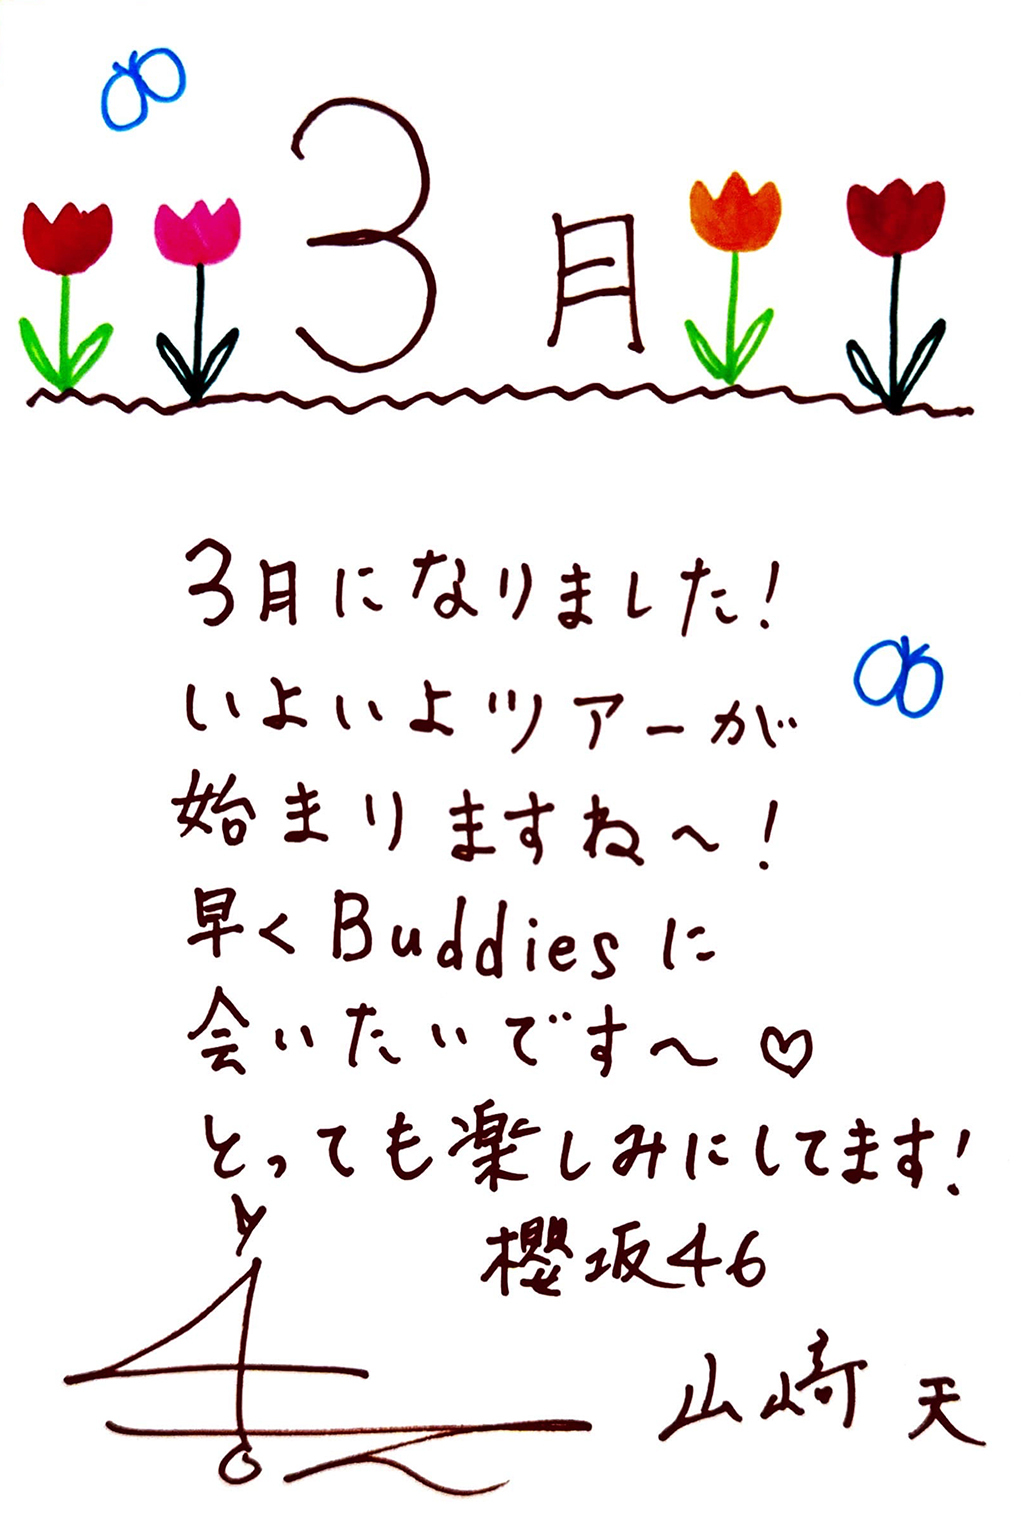 3月
3月になりました!
いよいよツアーが
始まりますね〜!
早くBuddiesに
会いたいです〜♡
とっても楽しみにしてます!
櫻坂46
山﨑 天